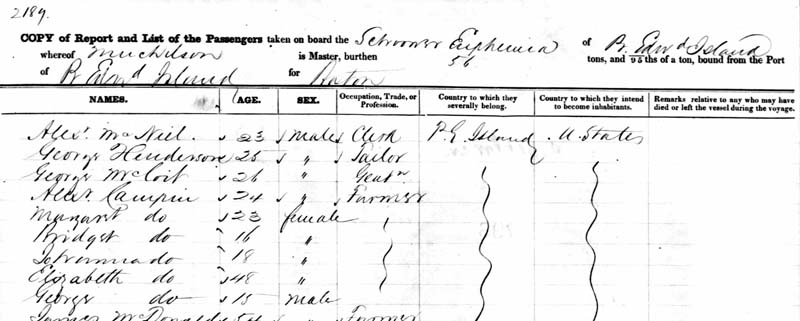 2189.
COPY of Report and List of the Passengers taken on board the Schooner Euphemia of Pr. Edwd Island
whereof Muchilson is Master, burthen 56 tons, and 95ths of a ton, bound from the Port
of Pr Edwd Island for Boston
NAMES. AGE. SEX. Occupation, Trade, or Profession. Country to which they severally belong. Country to which they intend to become inhabitants. Remarks relative to any who may have died or left the vessel during the voyage.
Alexr. McNeil. 23 Male Clerk P.E. Island U. States
George Henderson 25 " Tailor
George McCoit 26 " Gentn
Alexr Campin 24 " Farmer
Margaret do 23 female
Bridget do 16 "
do 18 "
Elizabeth do 48 "
George do 15 male
James McDonald " Farmer